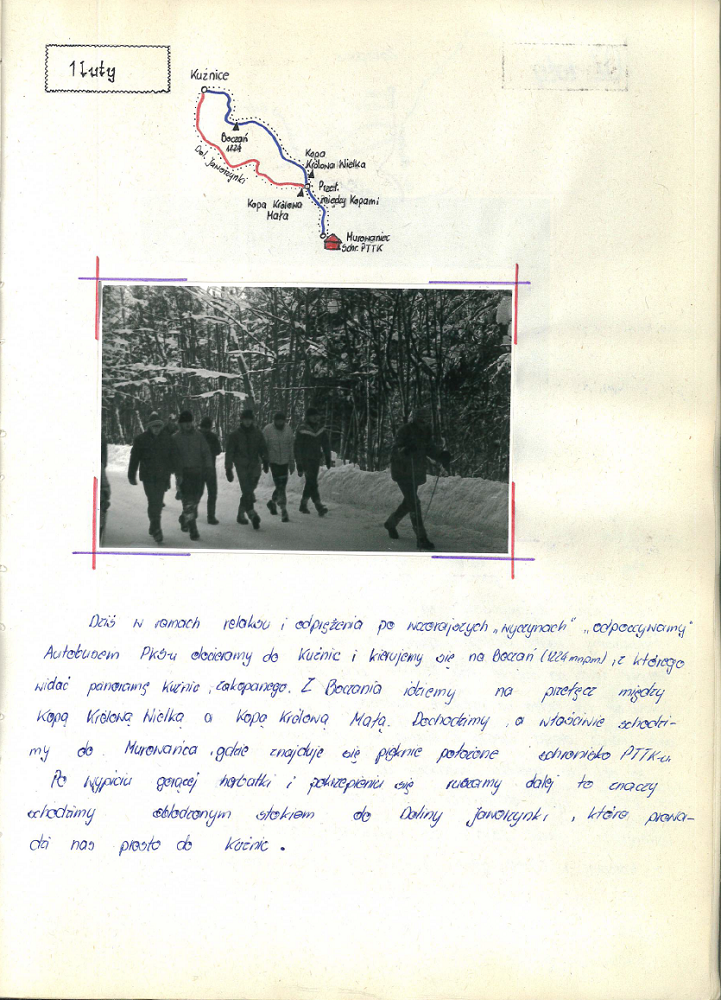 1 luty
Kuźnice
Boczań
1224
Dol. Jaworzynki
Kopa
Królowa Wielka
Przeł.
między Kopami
Kopa Królowa
Mała
Murowaniec
Schr. PTTK
Dziś w ramach relaksu i odprężenia po wczorajszych „wyczynach" „odpoczywamy"
Autobusem PKS-u docieramy do Kuźnic i kierujemy się na Boczań (1224 mnpm), z którego
widać panoramę Kuźnic, Zakopanego. Z Boczania idziemy na przełęcz między
Kopą Królową Wielką a Kopą Królową Małą. Dochodzimy, a właściwie schodzi-
my do Murowańca, gdzie znajduje się pięknie położone schronisko PTTK-u.
Po wypiciu gorącej herbatki i pokrzepieniu się ruszamy dalej to znaczy
schodzimy oblodzonym stokiem do Doliny Jaworzynki, która prowa-
dzi nas prosto do Kuźnic.